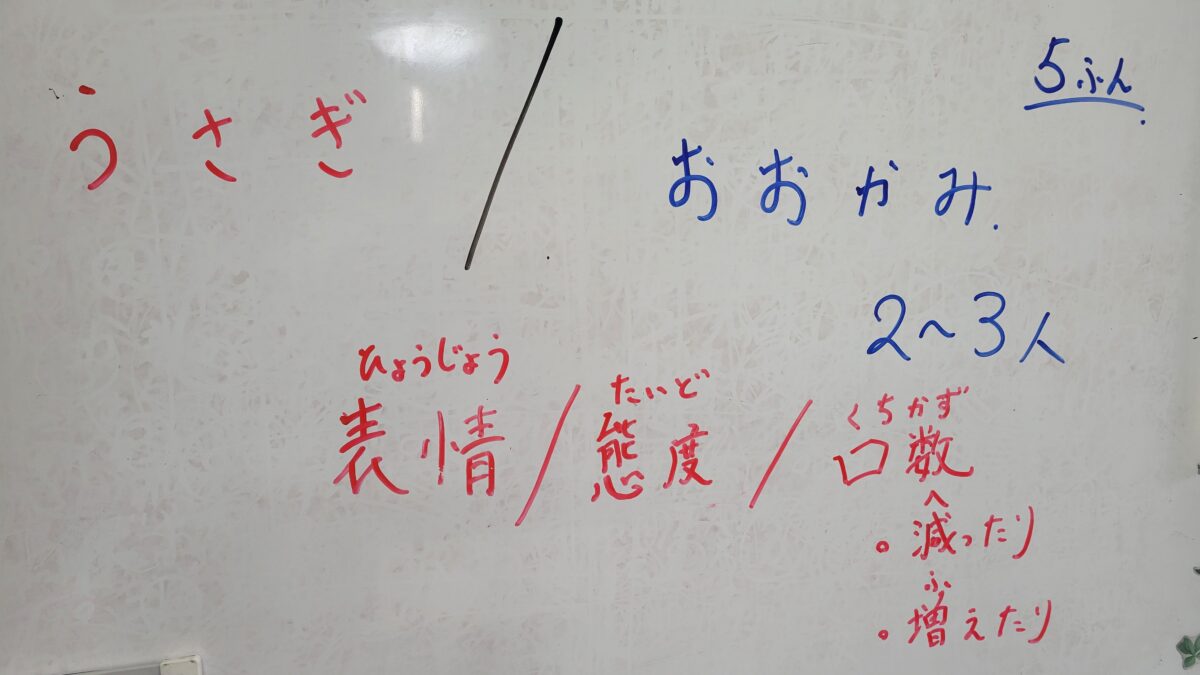 5ふん
うさぎ / おおかみ.
2〜3人
ひょうじょう たいど くちかず
表情 / 態度 / 口数
へ
・減ったり
ふ
・増えたり